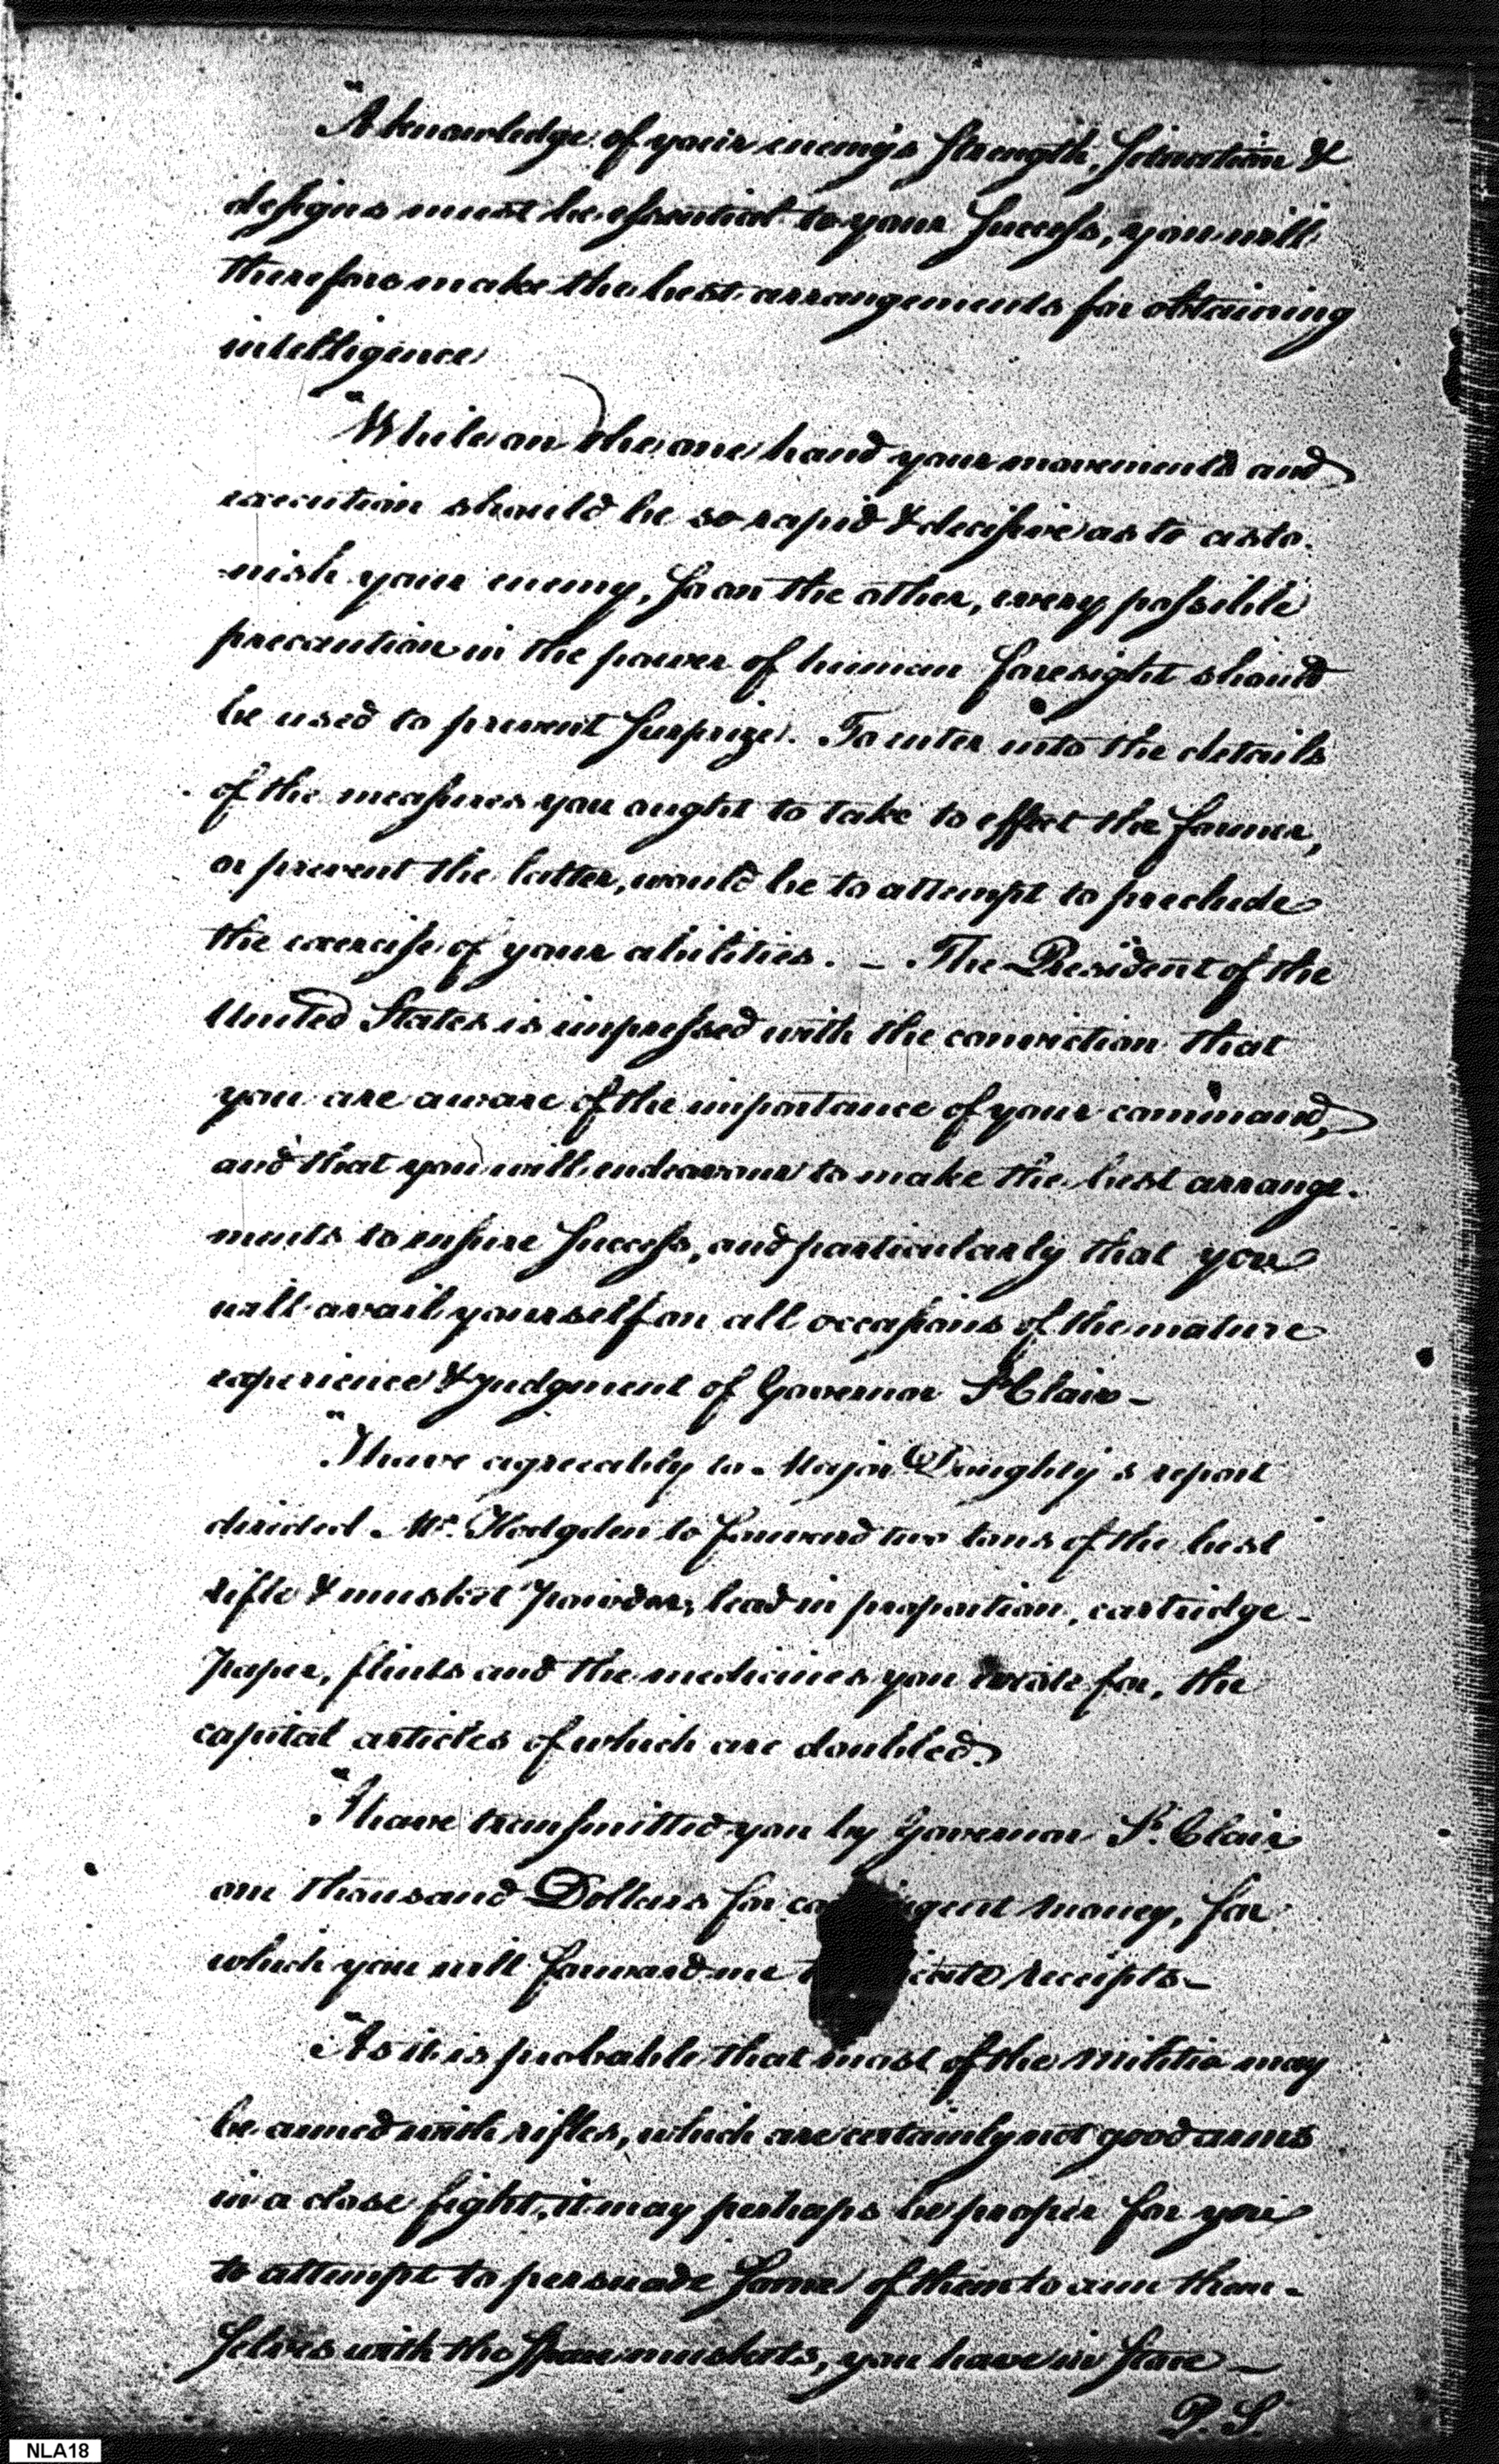 "A knowledge of your enemy's strength, situation &
designs must be essential to your success, you will
therefore make the best arrangements for obtaining
intelligence
"While on the one hand your movements and
execution should be so rapid & decisive as to asto-
nish your enemy, so on the other, every possible
precaution in the power of human foresight should
be used to prevent surprize. To enter into the details
of the measures you ought to take to effect the former,
or prevent the latter, would be to attempt to preclude
the exercise of your abilities. — The President of the
United States is impressed with the conviction that
you are aware of the importance of your command,
and that you will endeavour to make the best arrange-
ments to insure success, and particularly that you
will avail yourself on all occasions of the mature
experience & judgment of Governor St Clair —
"I have agreeably to Major Doughty's report
directed Mr. Hodgden to forward two tons of the best
rifle & musket powder, lead in proportion, cartridge-
paper, flints and the medicines you wrote for, the
capital articles of which are doubled.
"I have transmitted you by Governor St. Clair
one thousand Dollars for contingent money, for
which you will forward me receipts —
"As it is probable that most of the militia may
be armed with rifles, which are certainly not good arms
in a close fight, it may perhaps be proper for you
to attempt to persuade some of them to arm them-
selves with the spare muskets, you have in store —
P.S.
NLA18